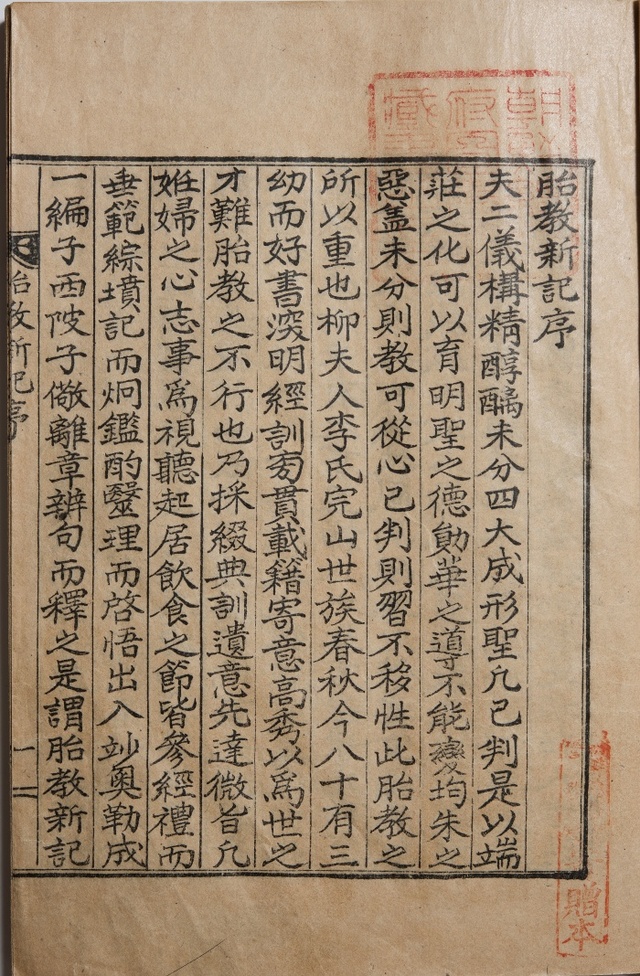 胎教新記序
夫二儀構精醇醨未分四大成形聖凡已判是以端
莊之化可以育明聖之德勛華之導不能變均朱之
惡盖未分則教可從心已判則習不移性此胎教之
所以重也柳夫人李氏完山世族春秋今八十有三
幼而好書深明經訓旁貫載籍寄意高秀以爲世之
才難胎教之不行也乃採綴典訓遺意先達微旨凡
姙婦之心志事爲視聽起居飲食之節皆參經禮而
垂範綜墳記而炯鑑酌毉理而啓悟出入竗奥勒成
一編子西陂子儆離章辨句而釋之是謂胎教新記
胎教新記序
一
贈本